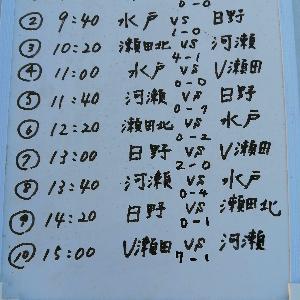 0-0
② 9:40 水戸 vs 日野
1-0
③ 10:20 瀬田北 vs 河瀬
4-1
④ 11:00 水戸 vs V瀬田
0-0
⑤ 11:40 河瀬 vs 日野
0-7
⑥ 12:20 瀬田北 vs 水戸
0-2
⑦ 13:00 日野 vs V瀬田
2-0
⑧ 13:40 河瀬 vs 水戸
0-4
⑨ 14:20 日野 vs 瀬田北
0-1
⑩ 15:00 V瀬田 vs 河瀬
7-1